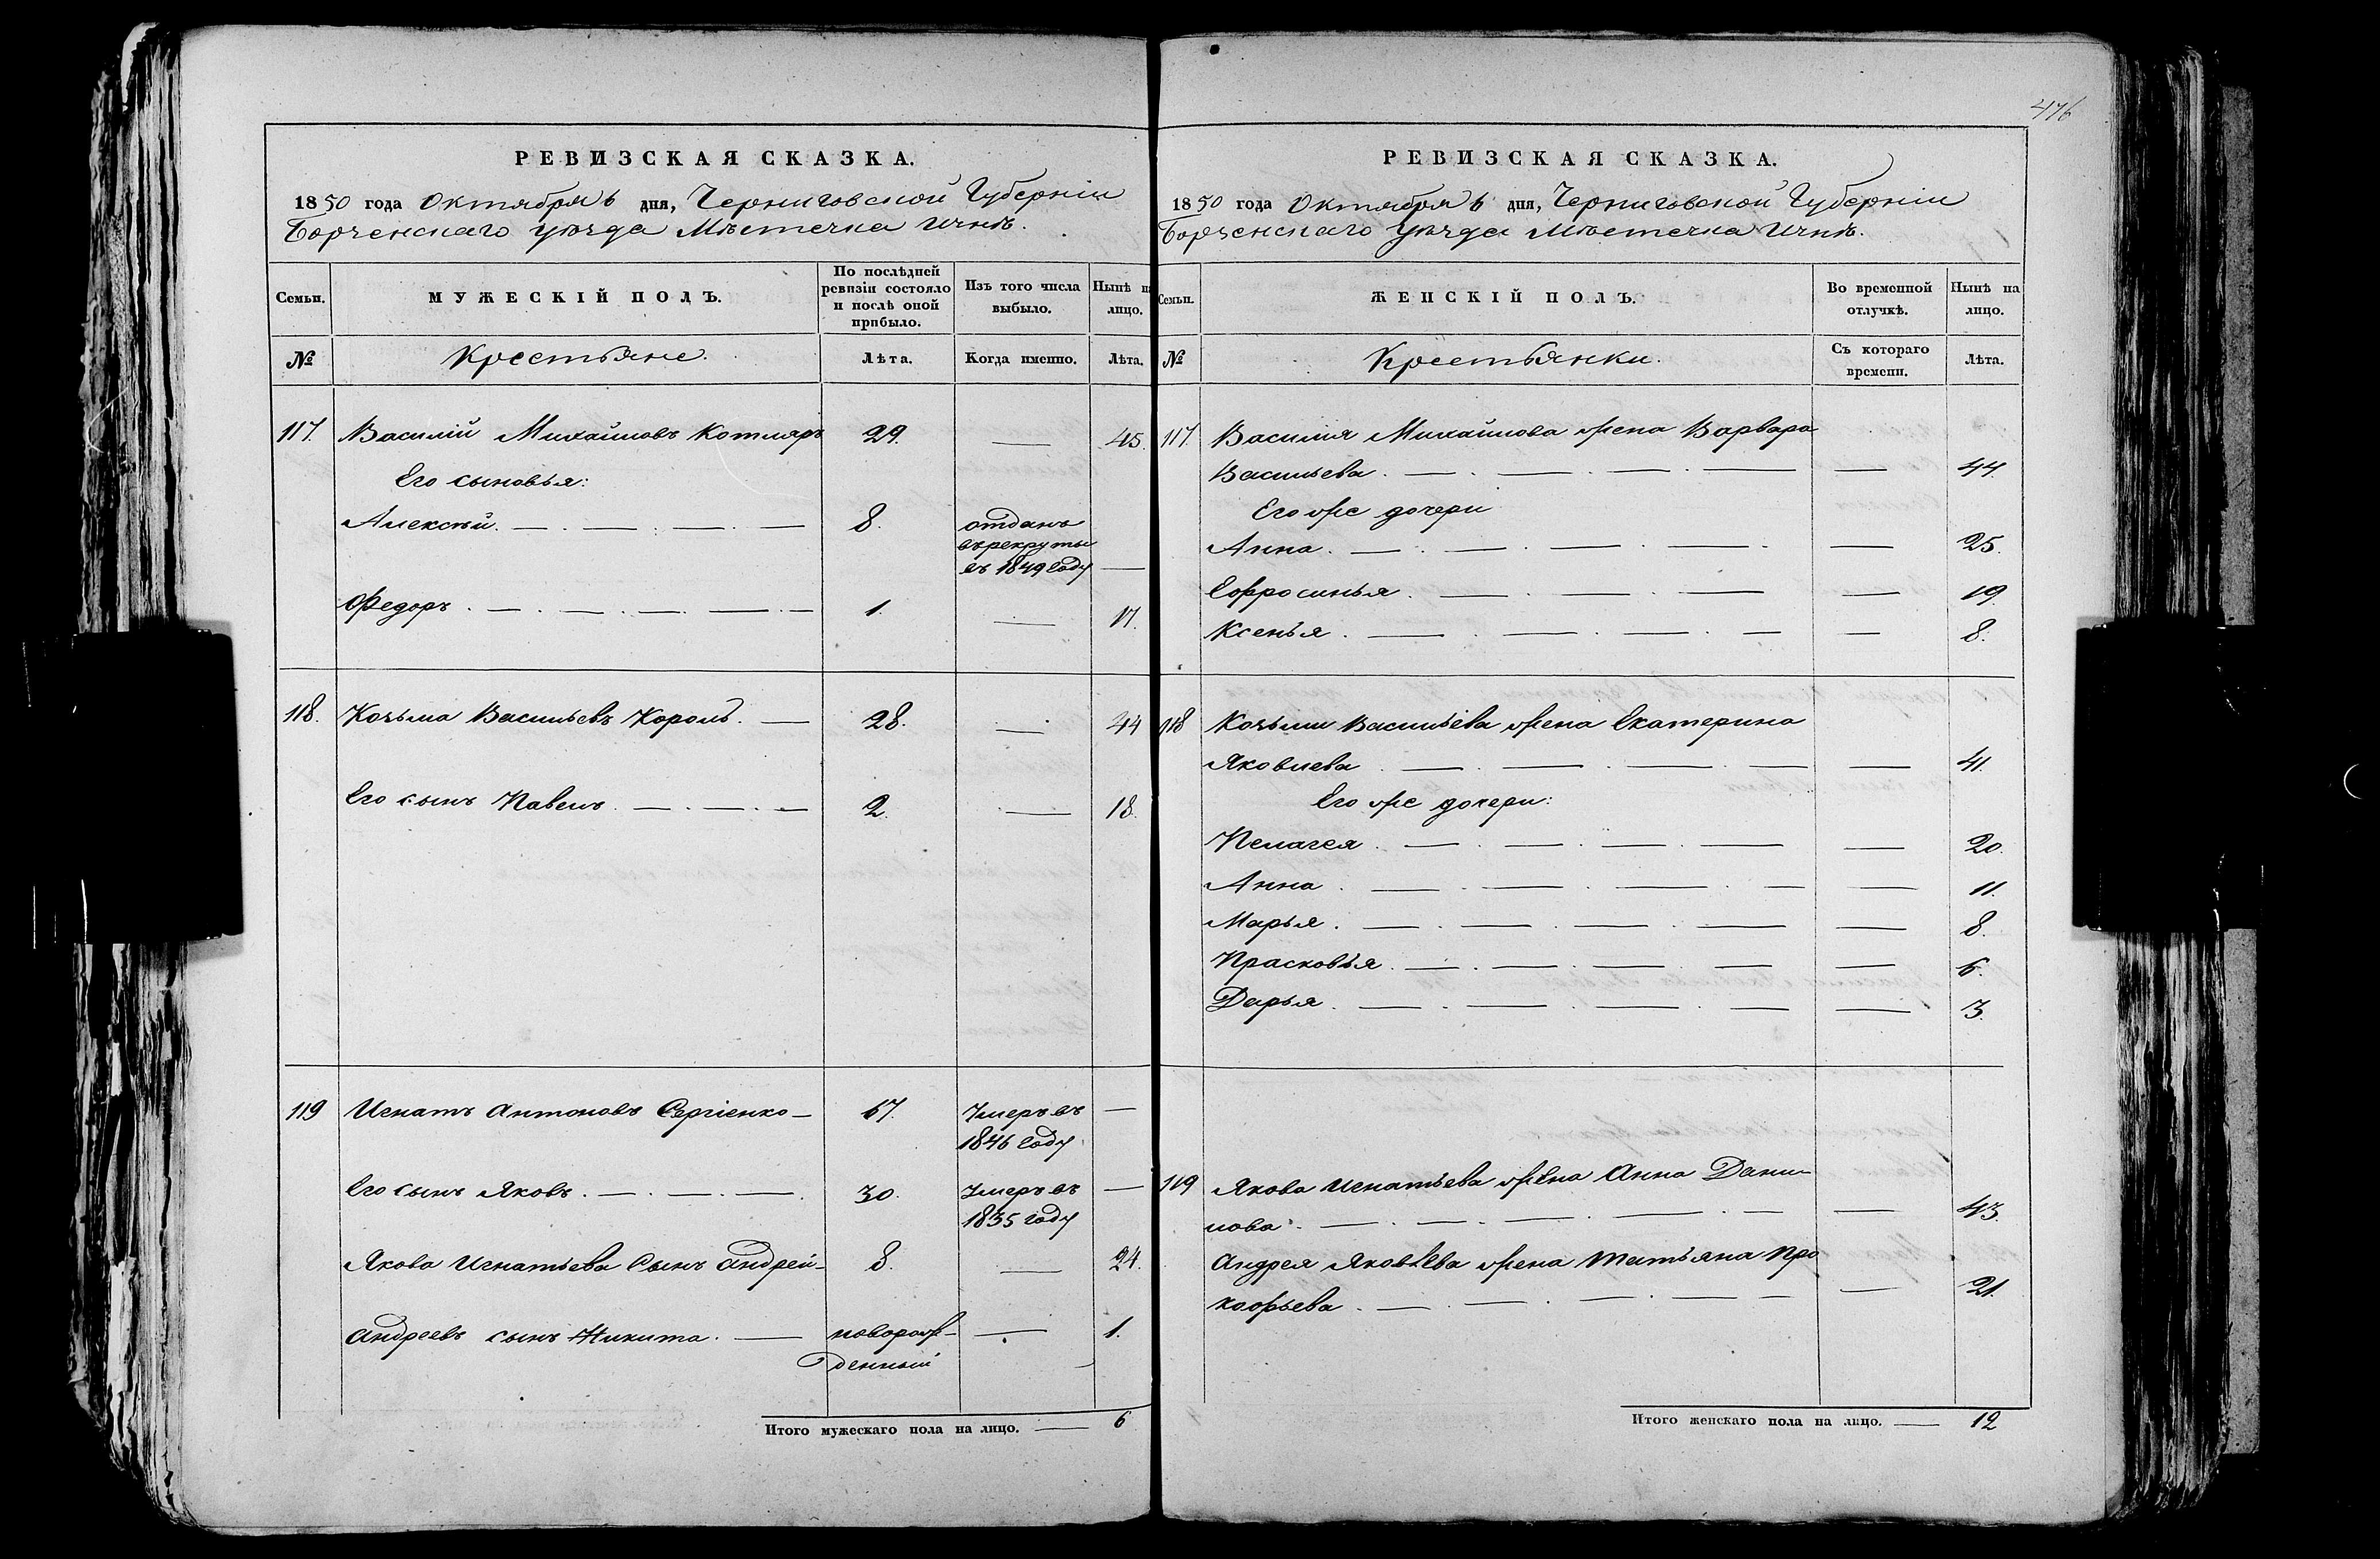 476
РЕВИЗСКАЯ СКАЗКА.
1850 года Октября 6 дня, Черниговской Губерніи
Борзенскаго уѣзда Мѣстечка Ични.
Семьи.
МУЖЕСКІЙ ПОЛЪ.
По послѣдней ревизіи состояло и послѣ оной прибыло.
Изъ того числа выбыло.
Нынѣ на лицо.
№
Крестьяне.
Лѣта.
Когда именно.
Лѣта.
117. Василій Михайловъ Котляръ 29. — 45.
Его сыновья:
Алексѣй. 8. отданъ
въ рекруты
въ 1849 году —
Федоръ. 1. — 17.
118. Козьма Васильевъ Король. — 28. — 44
Его сынъ Павелъ. 2. — 18.
119 Игнатъ Антоновъ Сергіенко — 67. Умеръ въ —
1846 году
Его сынъ Яковъ. 30. Умеръ въ —
1835 году
Якова Игнатьева Сынъ Андрей — 8. — 24.
Андреевъ сынъ Никита. — новорож- — 1.
денный
Итого мужескаго пола на лицо. — 6
РЕВИЗСКАЯ СКАЗКА.
1850 года Октября 6 дня, Черниговской Губерніи
Борзенскаго Уѣзда Мѣстечка Ични.
Семьи.
ЖЕНСКІЙ ПОЛЪ.
Во временной отлучкѣ.
Нынѣ на лицо.
№
Крестьянки.
Съ котораго времени.
Лѣта.
117. Василія Михайлова жена Варвара
Васильева. — 44.
Его же дочери
Анна. — 25.
Ефросинья. — 19.
Ксенья. — 8.
118 Козьмы Васильева жена Екатерина
Яковлева — 41.
Его же дочери:
Пелагея. — 20.
Анна. — 11.
Марья. — 8.
Прасковья. — 6.
Дарья. — 3.
119 Якова Игнатьева жена Анна Дани-
лова. — 43.
Андрея Яковлева жена Татьяна Про
кофьева. — 21.
Итого женскаго пола на лицо. — 12